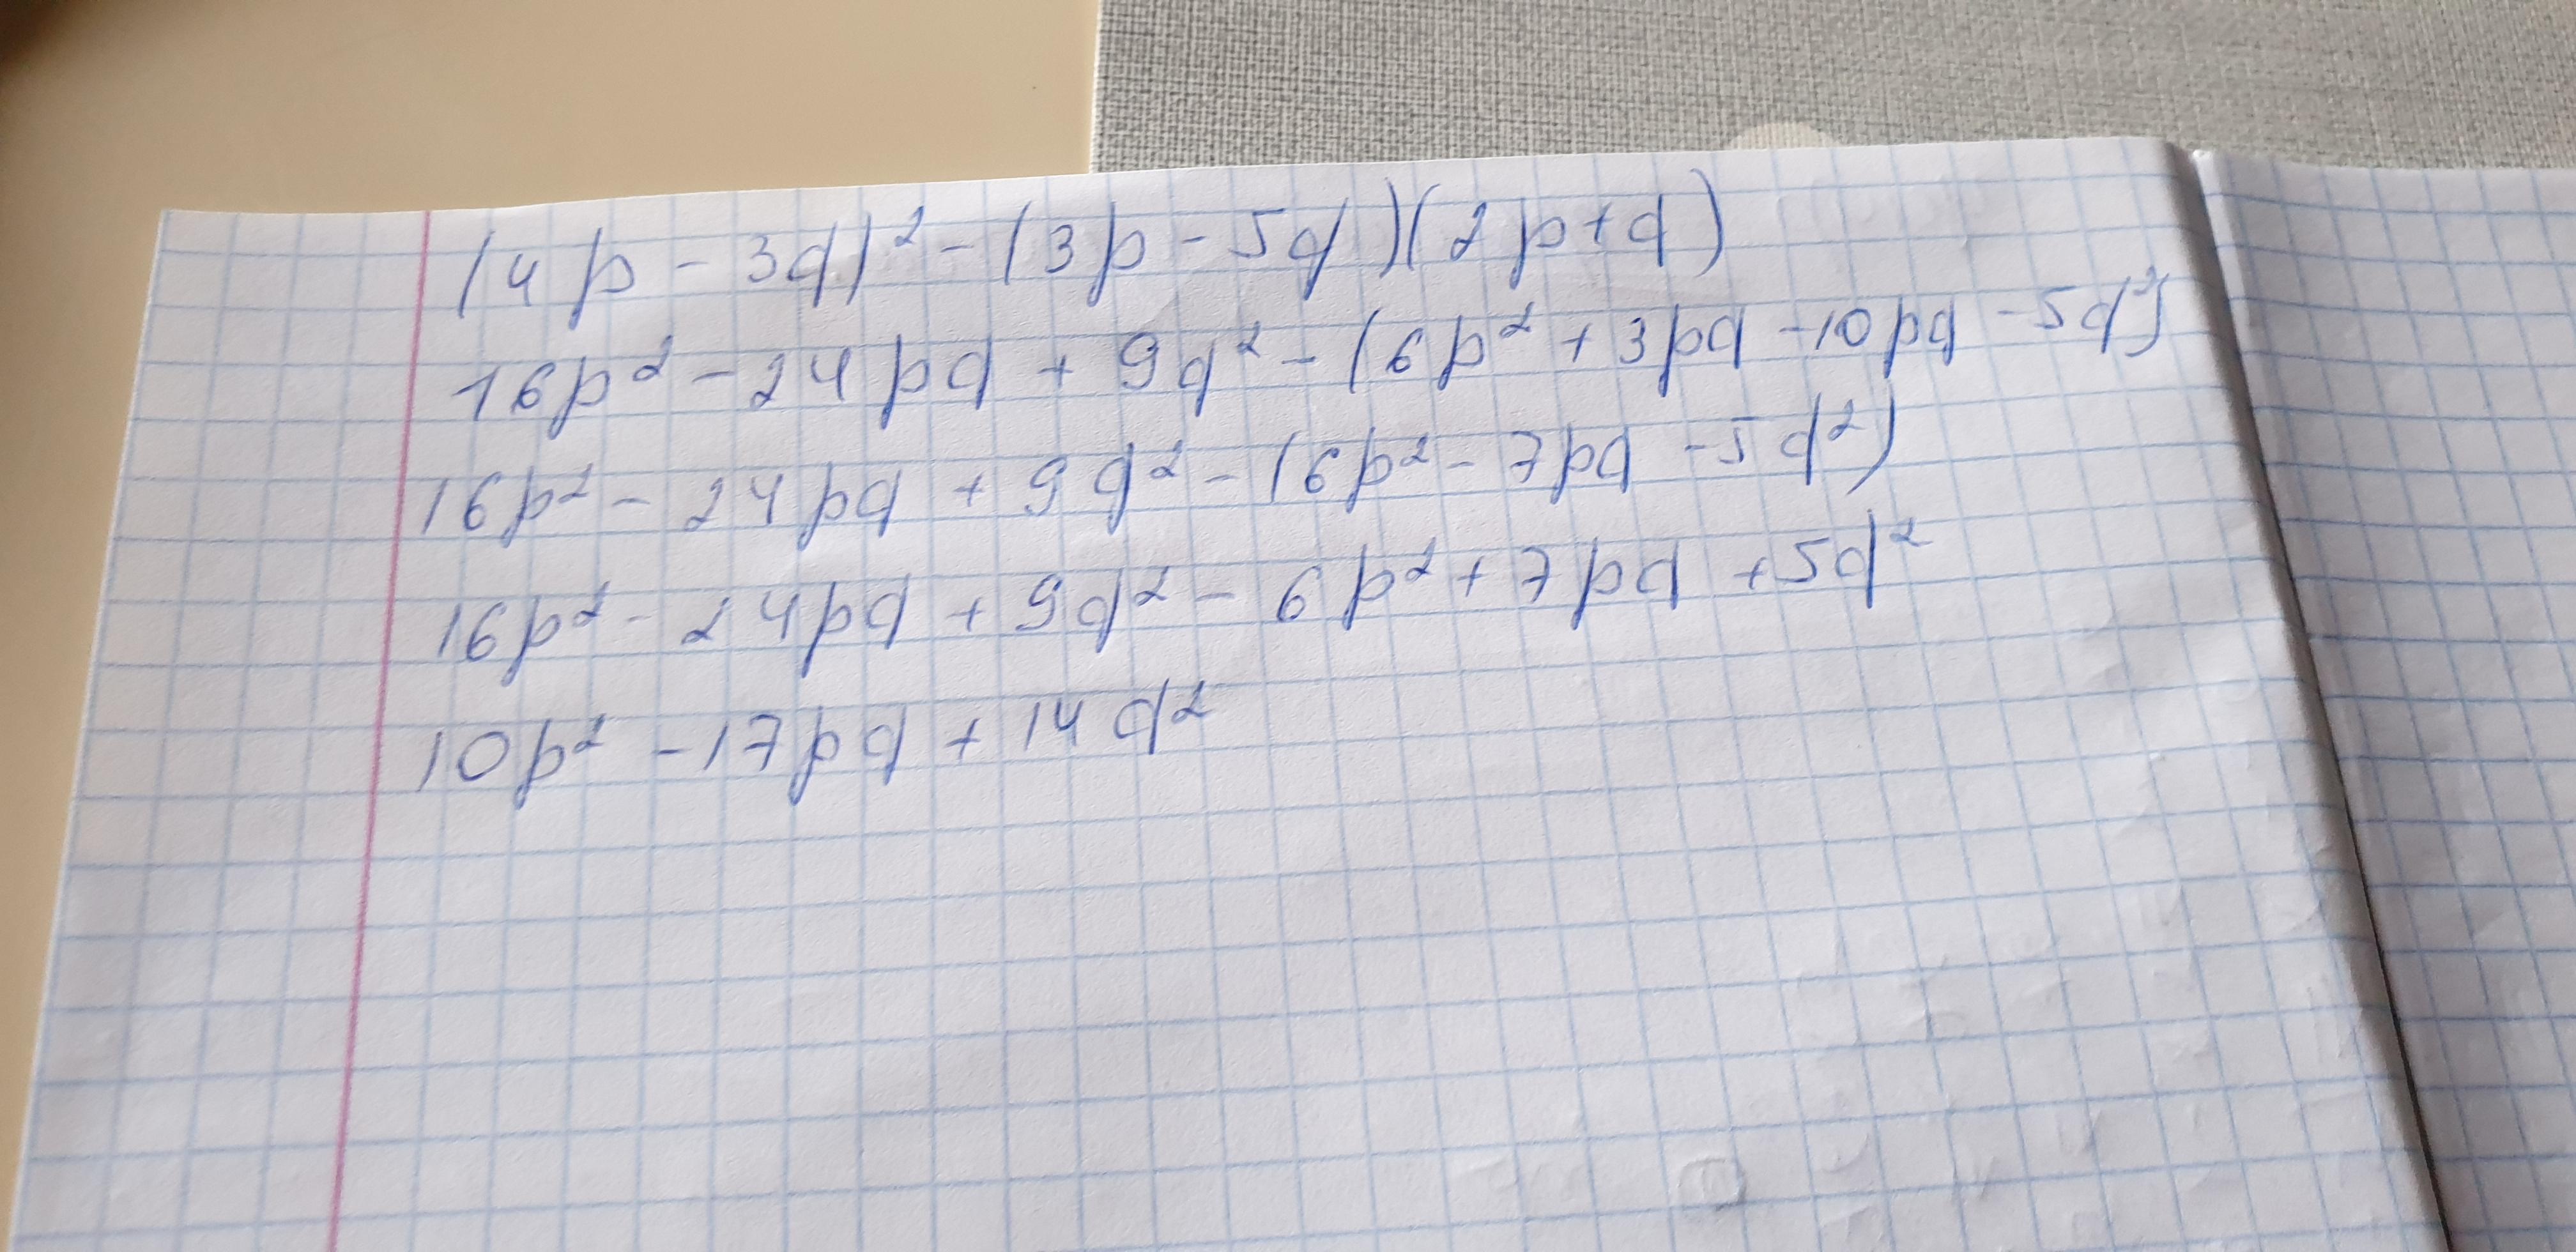 (4p - 3q)² - (3p - 5q)(2p+q)
16p² - 24pq + 9q² - (6p² + 3pq - 10pq - 5q²)
16p² - 24pq + 9q² - (6p² - 7pq - 5q²)
16p² - 24pq + 9q² - 6p² + 7pq + 5q²
10p² - 17pq + 14q²